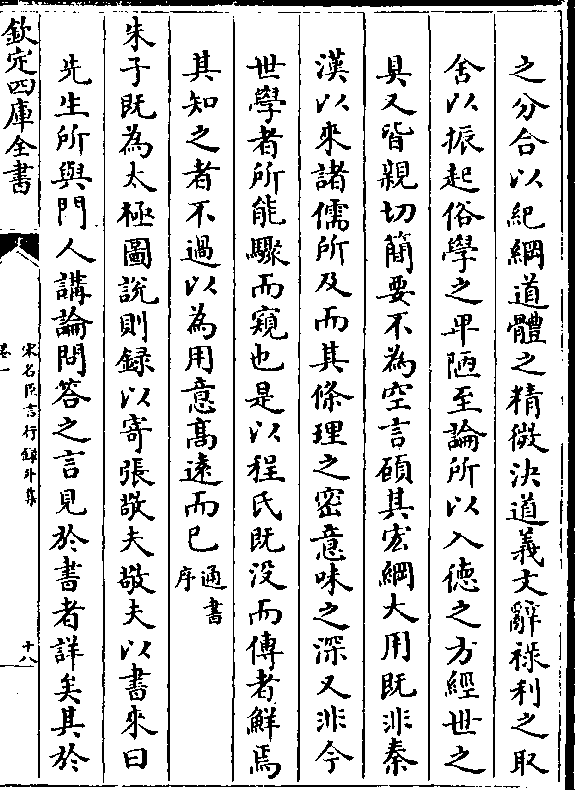 之分合以紀綱道體之精微決道義文辭祿利之取
舍以振起俗學之卑陋至論所以入德之方經世之
具又皆親切簡要不為空言顧其宏綱大用既非秦
漢以來諸儒所及而其條理之密意味之深又非今
世學者所能驟而窺也是以程氏既没而傳者鮮焉
其知之者不過以為用意高遠而已通書序
朱子既為太極圖說則録以寄張敬夫敬夫以書來曰
先生所與門人講論問答之言見於書者詳矣其於
欽定四庫全書
宋名臣言行録外集
卷一
十八